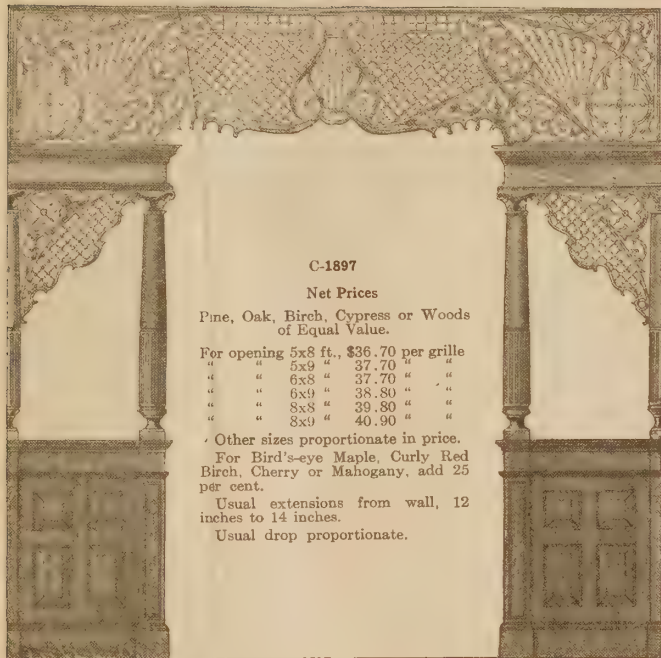 C-1897
Net Prices
Pine, Oak, Birch, Cypress or Woods
of Equal Value.
For opening 5x8 ft., $36.70 per grille
“ “ 5x9 “ 37.70 “ “
“ “ 6x8 “ 37.70 “ “
“ “ 6x9 “ 38.80 “ “
“ “ 8x8 “ 39.80 “ “
“ “ 8x9 “ 40.90 “ “
Other sizes proportionate in price.
For Bird's-eye Maple, Curly Red
Birch, Cherry or Mahogany, add 25
per cent.
Usual extensions from wall, 12
inches to 14 inches.
Usual drop proportionate.